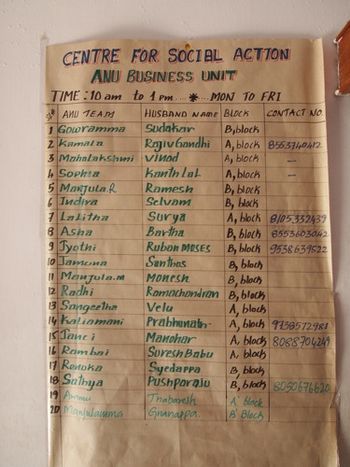 CENTRE FOR SOCIAL ACTION
ANU BUSINESS UNIT
TIME: 10 am to 1 pm * MON TO FRI
S# ANU TEAM HUSBAND NAME BLOCK CONTACT NO.
1 Gowramma Sudakar B, block
2 Kamala Rajiv Gandhi A, block 8553740412
3 Mahalakshmi Vinod A, block –
4 Sophia Kanth lal A, block –
5 Manjula.R Ramesh B, block
6 Indira Selvam B, block
7 Lalitha Surya A, block 8105332439
8 Asha Bartha B, block 8553603042
9 Jyothi Ruban MOSES B, block 9538639522
10 Jamuna Santhos B, block
11 Manjula.m Monesh B, block
12 Radhi Ramachandran B, block
13 Sangeetha Velu A, block
14 Kaliamani Prabhunath A, block
15 Jansi Manohar A, block 8088704249
16 Rambai Suresh Babu A, block
17 Renuka Syedappa B, block
18 Sathya Pushparaju B, block 8050676620
19 Ammu Thabaresh A' block
20 Manjulamma Gnanappa. B' Block